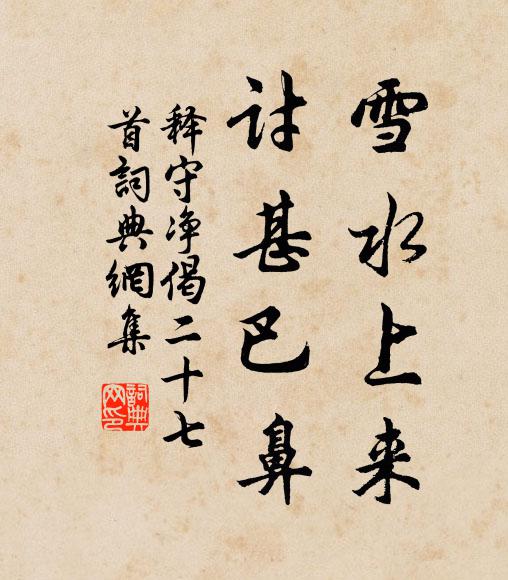 雪水上来
讨甚巴鼻
释守净偈二十七
首詞典網集
詞典网印